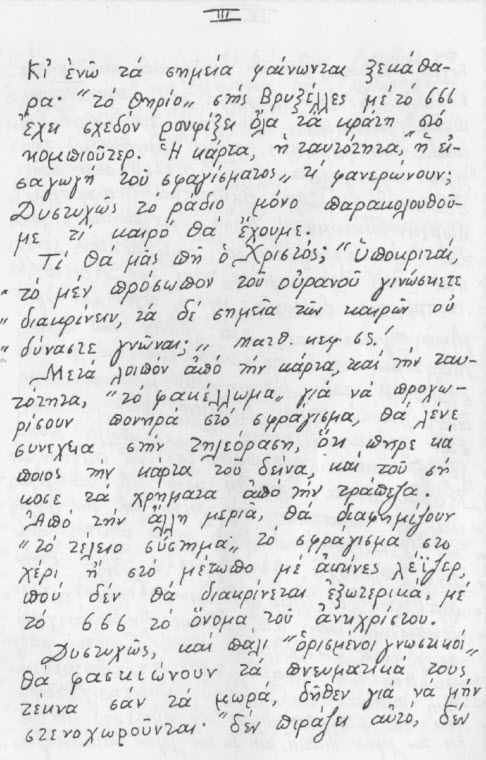 III
Κι' ἐνῶ τά σημεῖα φαίνωνται ξεκάθα-
ρα· "τό θηρίο" στής Βρυξέλλες μέ τό 666
ἔχει σχεδόν ρουφίξει ὅλα τά κράτη στό
κομπιοῦτερ. Ἡ κάρτα, ἡ ταυτότητα, "ἡ εἰ-
σαγωγή τοῦ σφαγίσματος„ τί φανερώνουν;
Δυστυχῶς τό ράδιο μόνο παρακολουθοῦ-
με τί καιρό θά ἔχουμε.
Τί θά μᾶς πῆ ὁ Χριστός; "Ὑποκριταί,
" τό μέν πρόσωπον τοῦ οὐρανοῦ γινώσκετε
„ διακρίνειν, τά δέ σημεῖα τῶν καιρῶν οὐ
„ δύναστε γνῶναι; „ ματθ. κεφ 16.!
Μετά λοιπόν ἀπό τήν κάρτα, καί τήν ταυ-
τότητα, "τό φακέλλωμα„ γιά νά προχω-
ρίσουν πονηρά στό σφράγισμα, θά λένε
συνεχεια στήν τηλεόραση, ὅτι πῆρε κά
ποιος τήν κάρτα τοῦ δεῖνα, καί τοῦ σή
κοσε τά χρήματα ἀπό τήν τράπεζα.
Ἀπό τήν ἄλλη μεριά, θά διαφημίζουν
"τό τέλειο σύστημα„ τό σφράγισμα στο
χέρι ἤ στό μέτωπο μέ ἀκτίνες λέϊζερ,
πού δέν θά διακρίνεται ἐξωτερικά, μέ
τό 666 τό ὄνομα τοῦ ἀντιχρίστου.
Δυστυχῶς, καί πάλι "ὁρισμένοι γνωστικοί„
θά φασκιώνουν τά πνευματικά τους
τέκνα σάν τά μωρά, δῆθεν γιά νά μήν
στενοχωροῦνται· "δέν πιράζει αὐτό, δέν